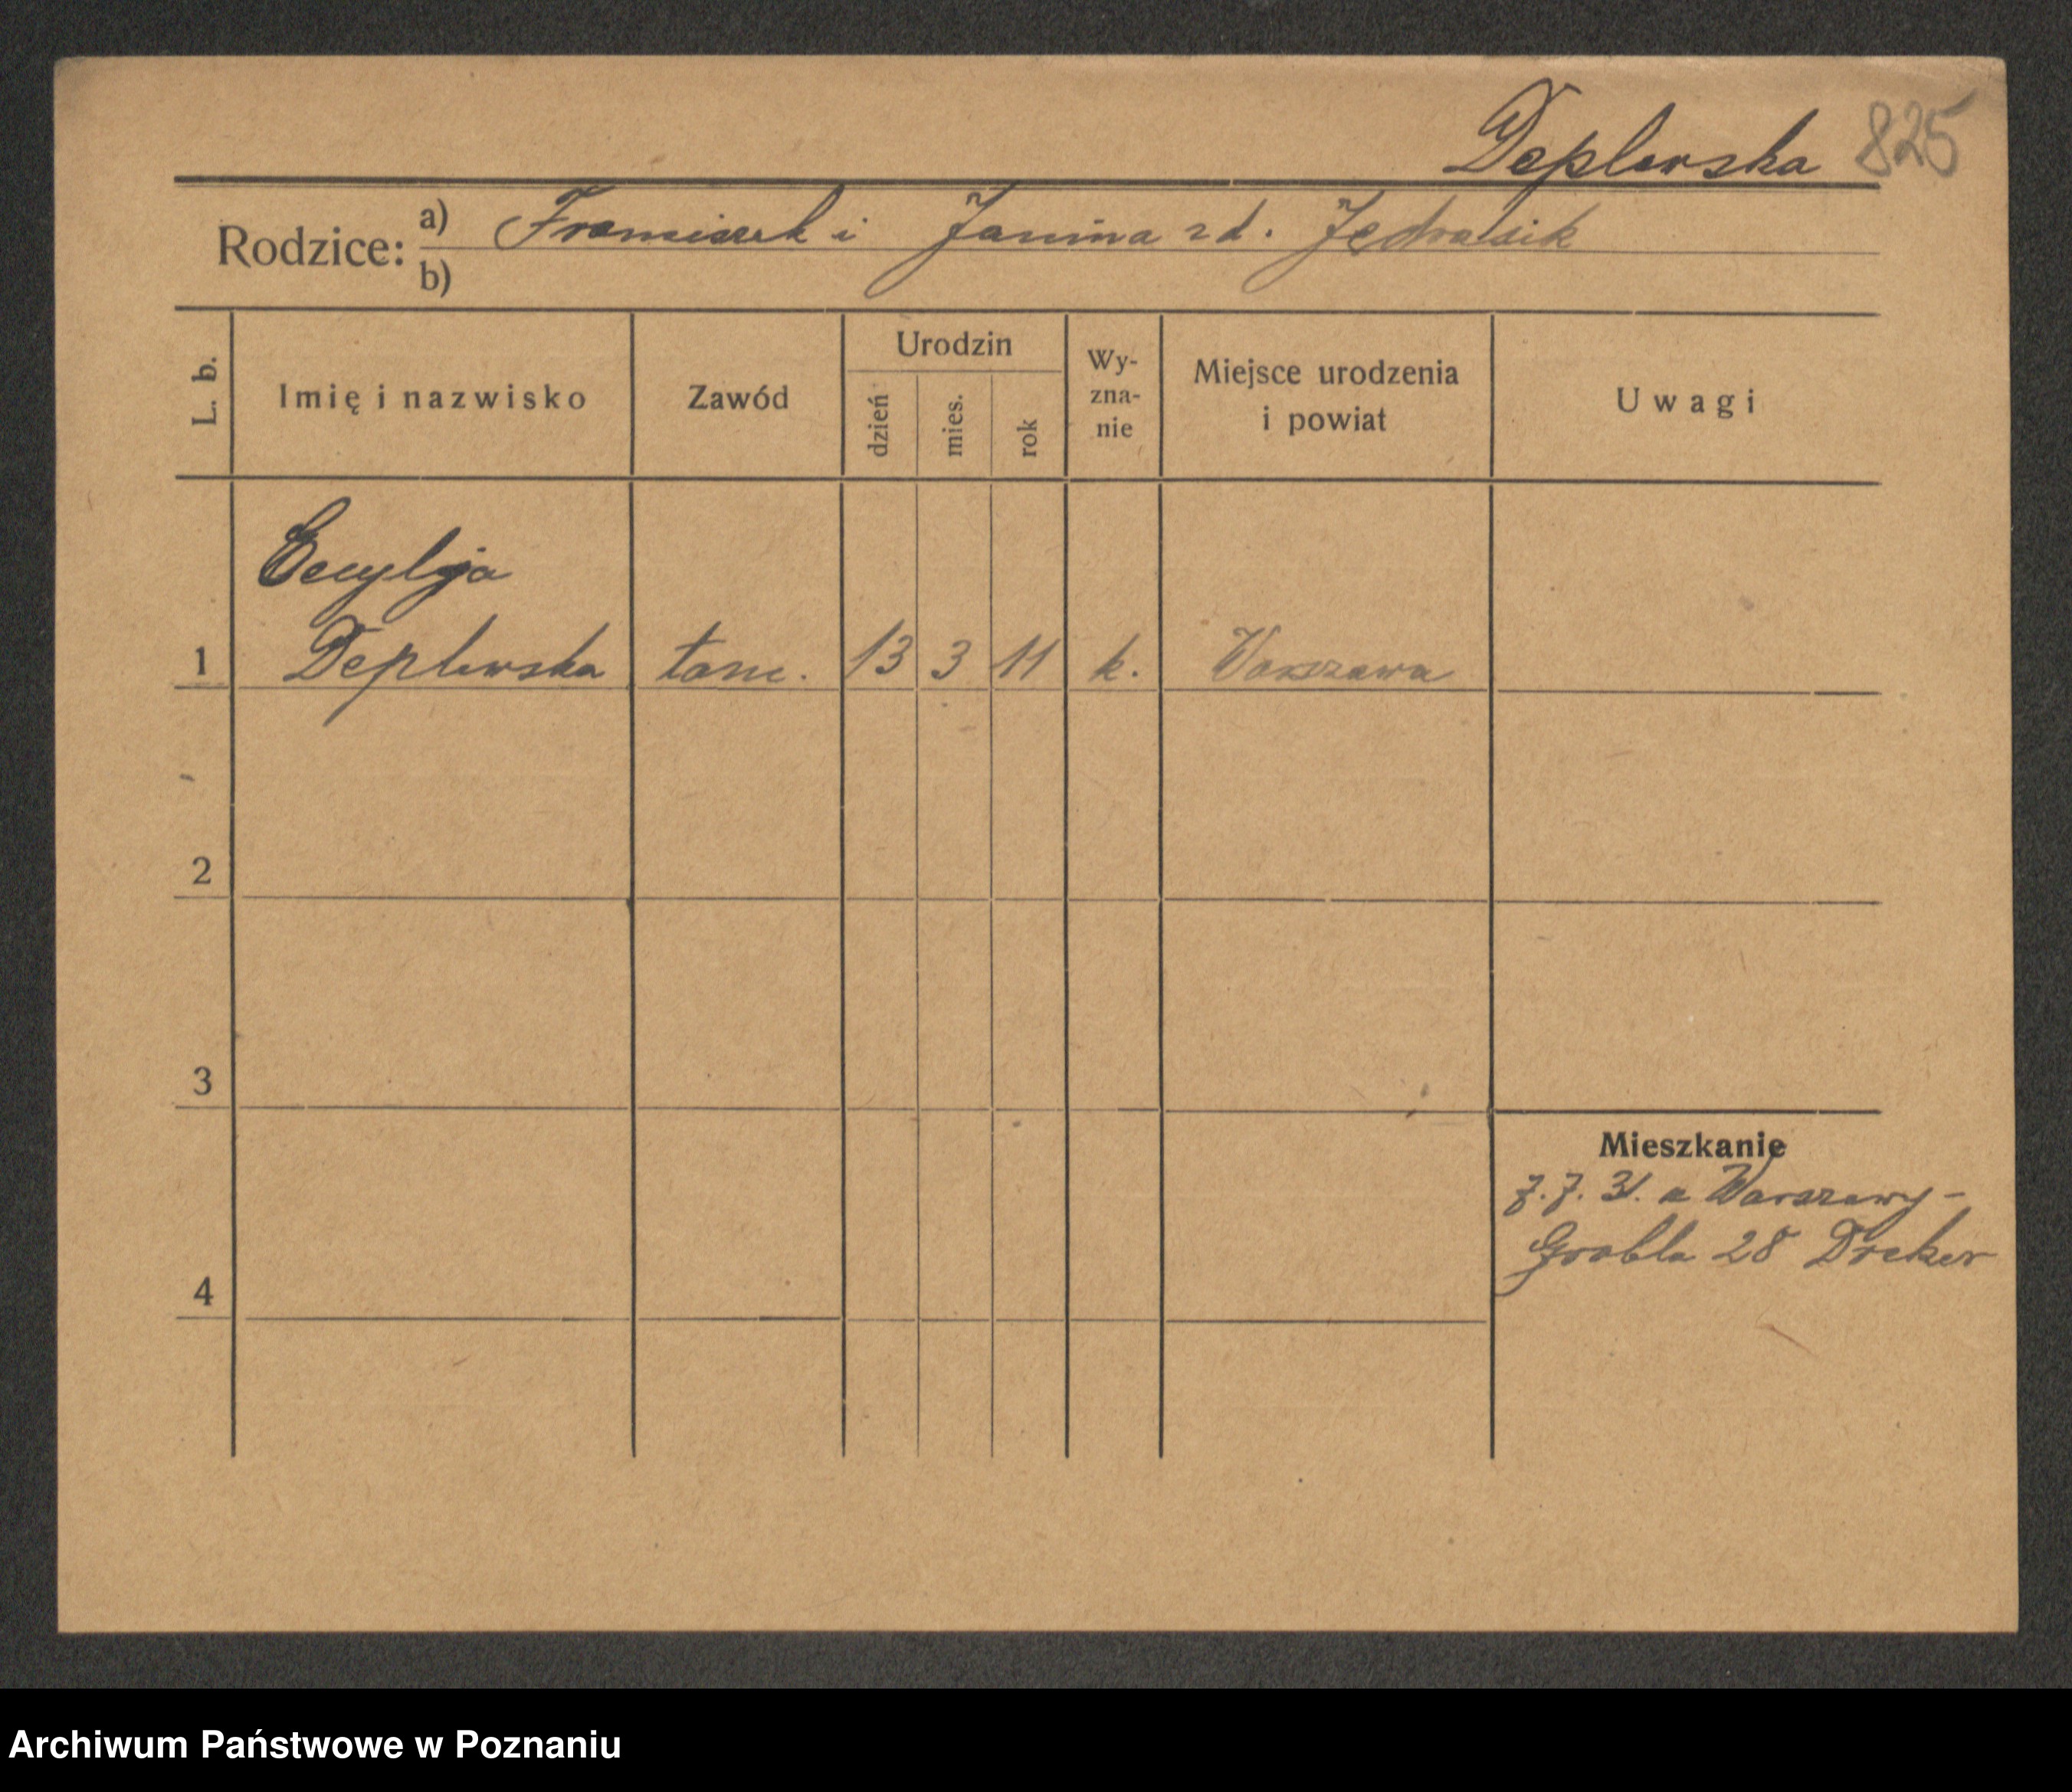 Deplewska 825
Rodzice: a) Franciszek i Janina zd. Jędrasik
b)
L. b. Imię i nazwisko Zawód Urodzin dzień mies. rok Wy-zna-nie Miejsce urodzenia i powiat Uwagi
Cecylja
1 Deplewska tanc. 13 3 11 k. Warszawa
2
3
Mieszkanie
7.7.31. z Warszawy -
Grobla 28 Dreker
4
Archiwum Państwowe w Poznaniu